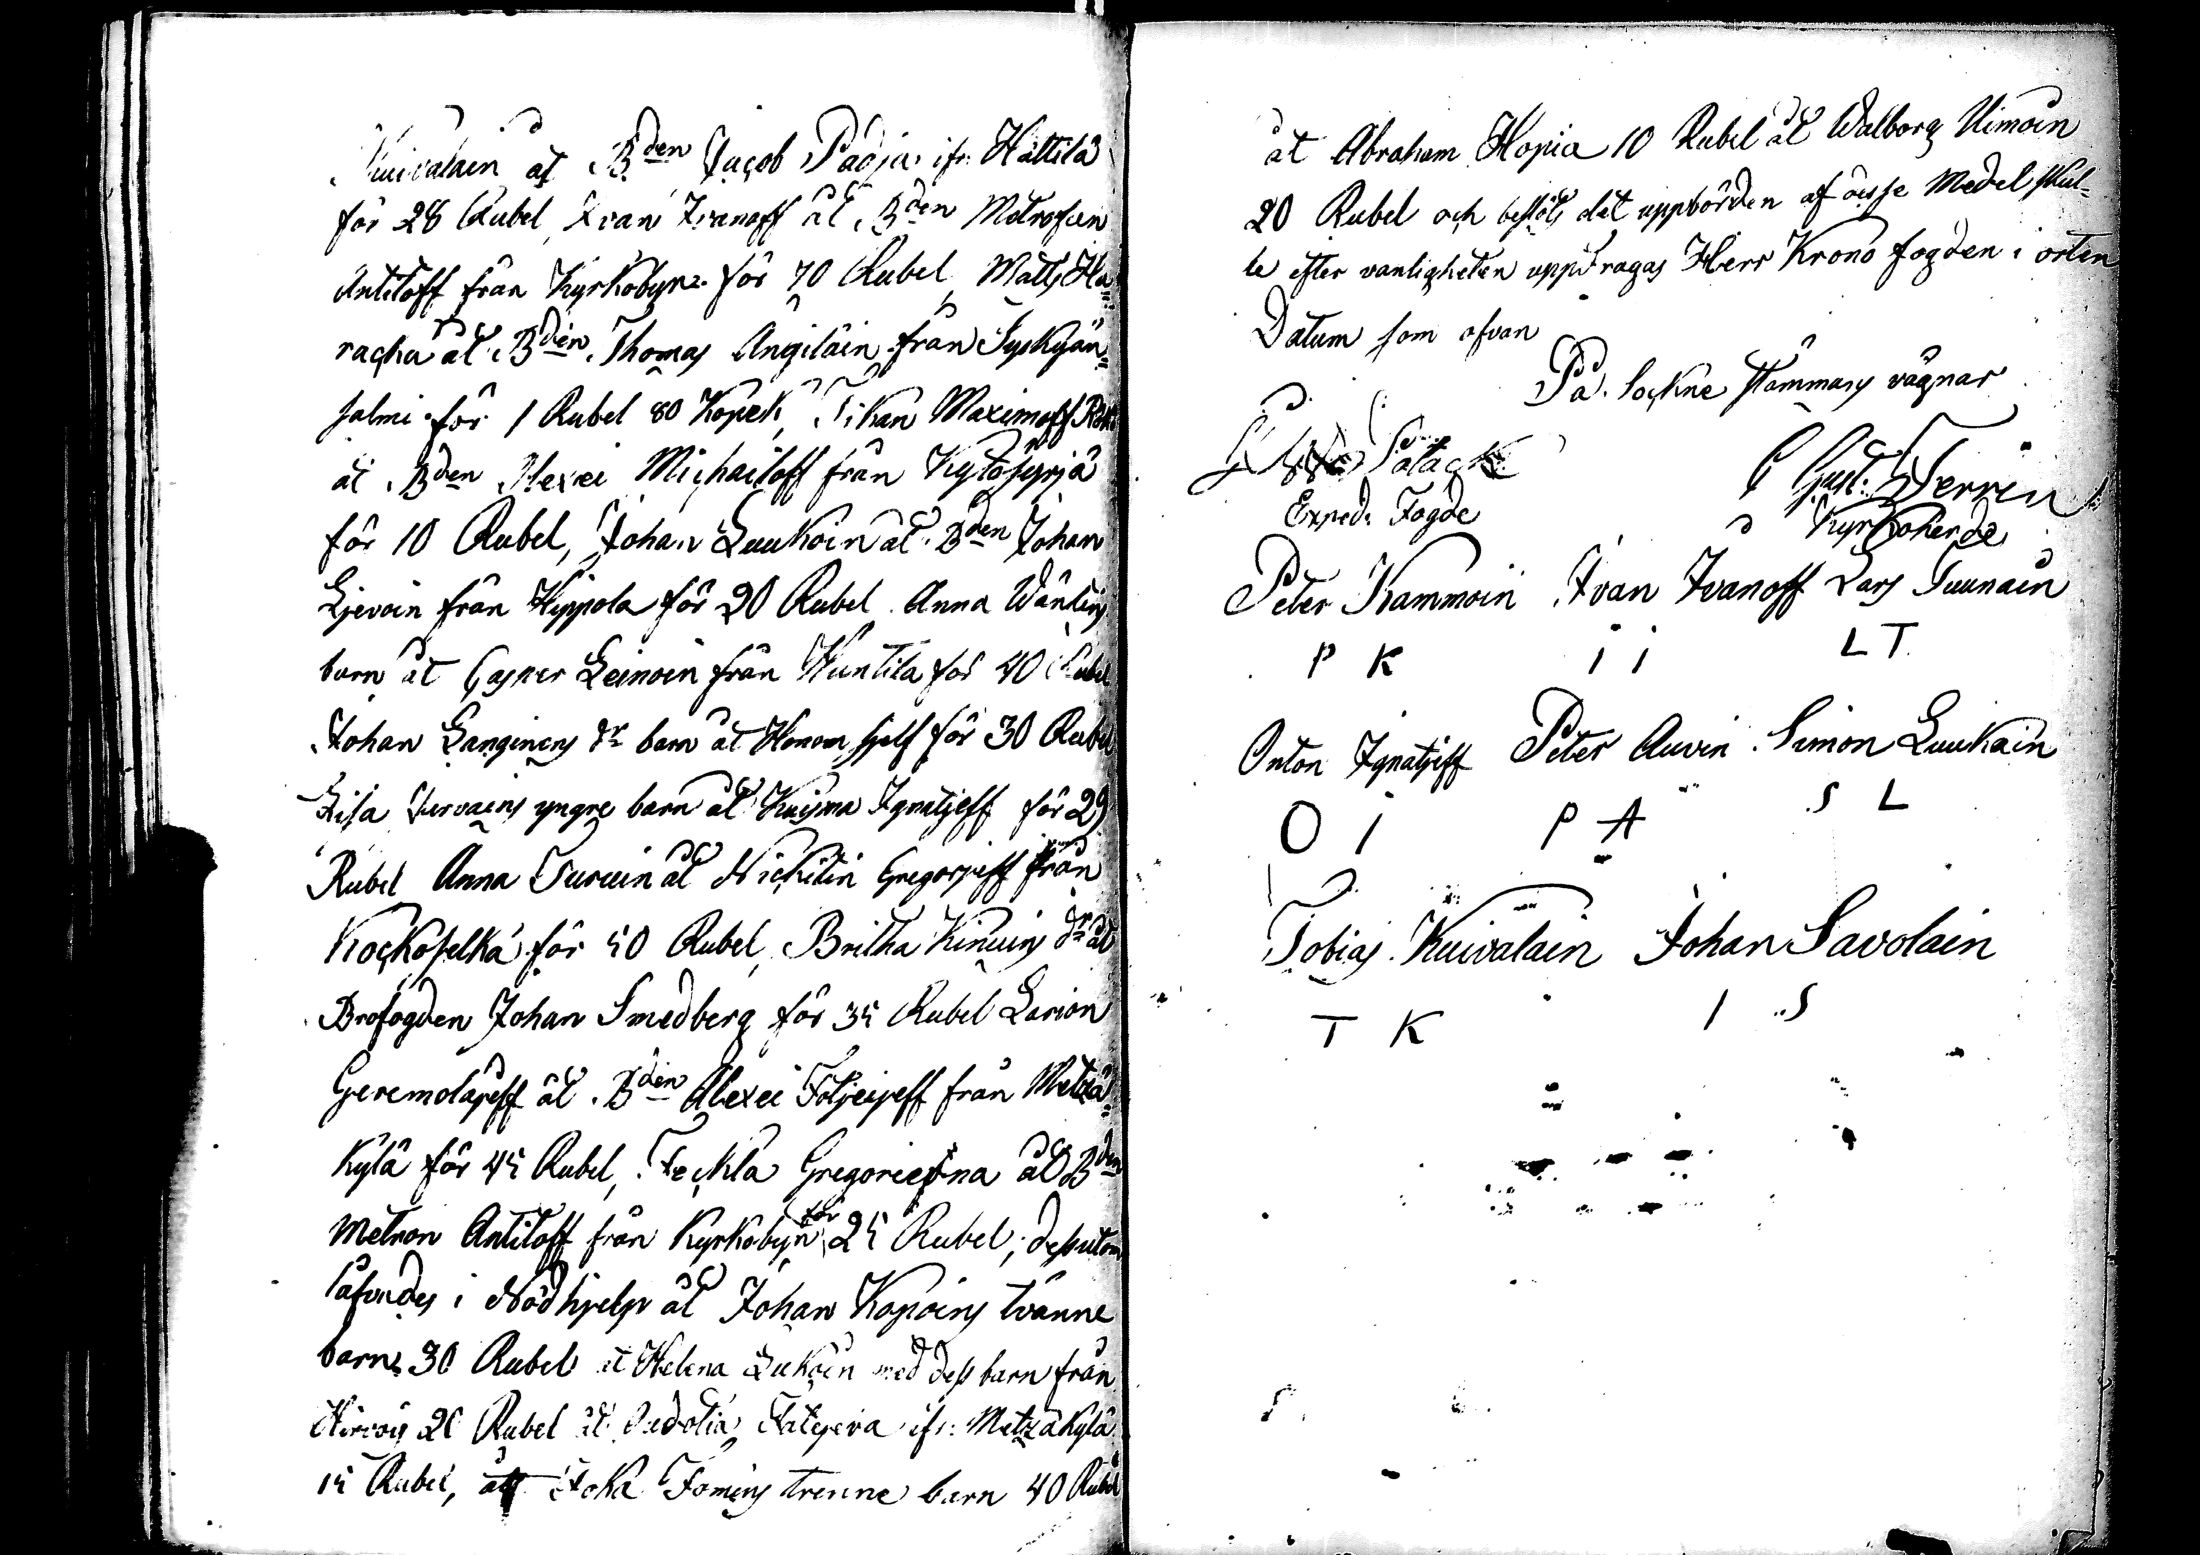 Kuivalain åt Bden Jacob Padja ifr: Hattila
för 28 Rubel, Ivan Ivanoff åt Bden Mitrofan
Antitoff från Kyrkobyn för 70 Rubel, Matts Ha=
racka åt Bden Thomas Angilain från Syskyän=
salmi för 1 Rubel 80 Kopek, Tikan Maximoff
åt Bden Alexei Michailoff från Kytösyrjä
för 10 Rubel, Johan Luukoin åt Bden Johan
Ljevoin från Kippola för 20 Rubel Anna Wänskes
barn åt Casper Leinoin från Huntila för 40 Rubel
Johan Langinens dr barn åt Honom sjelf för 30 Rubel
Lisa Hirvoins yngre barn åt Kusma Ignatjeff för 29
Rubel Anna Turuin åt Nickitin Gregorjeff från
Kockoselkä för 50 Rubel, Britha Kinuins dr åt
Brofogden Johan Smedberg för 35 Rubel Larion
Geremolajeff åt Bden Alexei Fotjeijeff från Metzä=
kylä för 45 Rubel, Feckla Gregorieffna åt Bden
Metron Antitoff från Kyrkobyn för 25 Rubel; dessutom
låfvades i Nödhjelp åt Johan Kopoins tvänne
barn 30 Rubel åt Helena Lukoin med dess barn från
Hirvois 20 Rubel åt Fatejeva ifr: Metzäkylä
15 Rubel, åt Foka Fomins trenne barn 40 Rubel
åt Abraham Hopia 10 Rubel åt Walborg Uimoin
20 Rubel och beslöts det uppbörden af desse Medel skul=
le efter vanligheten uppdragas Herr Krono fogden i orten
Datum som ofvan
På Sockne Stämmans vägnar
Polack
Exped: Fogde
C Gust: Werrin
Kyrkoherde
Peter Kammoin Ivan Ivanoff Lars Tuunain
P K I I L T
Onton Ignatjeff Peter Auvin Simon Luukain
O I P A S L
Tobias Kuivalain Johan Savolain
T K I S